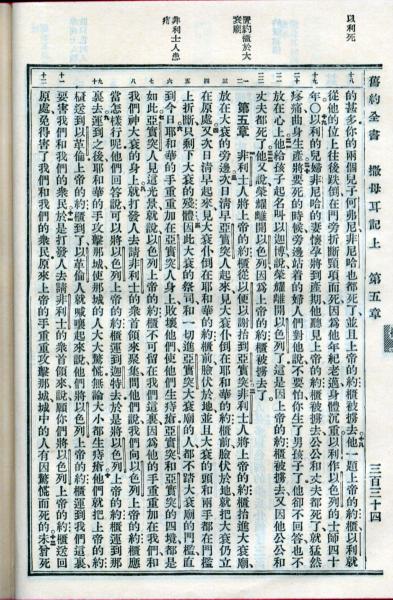 舊約全書 撒母耳記上 第五章 三百三十四
以利死
置約櫃於大袞廟
非利士人患痔
的甚多你的兩個兒子何弗尼非尼哈也都死了並且上帝的約櫃被擄去他一題上帝的約櫃以利就
從他的位上往後跌倒在門旁折斷頸項而死因為他年紀老邁身體沉重以利作以色列的士師四十
年○以利的兒婦非尼哈的妻懷孕將到產期他聽見上帝的約櫃被擄去公公和丈夫都死了就猛然
疼痛曲身生產將要死的時候旁邊站着的婦人們對他說不要怕你生了男孩子了他卻不回答也不
放在心上他給孩子起名叫以迦博說榮耀離開以色列了這是因上帝的約櫃被擄去又因他公公和
丈夫都死了他又說榮耀離開以色列因為上帝的約櫃被擄去了
第五章 非利士人將上帝的約櫃從以便以謝抬到亞實突非利士人將上帝的約櫃抬進大袞廟
放在大袞的旁邊次日清早亞實突人起來見大袞仆倒在耶和華的約櫃前臉伏於地就把大袞仍立
在原處又次日清早起來見大袞仆倒在耶和華的約櫃前臉伏於地並且大袞的頭和兩手都在門檻
上折斷只剩下大袞的殘體因此大袞的祭司和一切進亞實突大袞廟的人都不踏大袞廟的門檻直
到今日耶和華的手重重加在亞實突人身上敗壞他們使他們生痔瘡亞實突和亞實突的四境都是
如此亞實突人見這光景就說以色列上帝的約櫃不可留在我們這裏因為他的手重重加在我們和
我們神大袞的身上就打發人去請非利士的眾首領來聚集問他們說我們向以色列上帝的約櫃應
當怎樣行呢他們回答說可以將以色列上帝的約櫃運到迦特去於是將以色列上帝的約櫃運到那
裏去運到之後耶和華的手攻擊那城使那城的人大大驚慌無論大小都生痔瘡他們就把上帝的約
櫃送到以革倫上帝的約櫃到了以革倫人就喊嚷起來說他們將以色列上帝的約櫃運到我們這裏
要害我們和我們的眾民於是打發人去請非利士的眾首領來說願你們將以色列上帝的約櫃送回
原處免得害了我們和我們的眾民原來上帝的手重重攻擊那城城中的人有因驚慌而死的未曾死